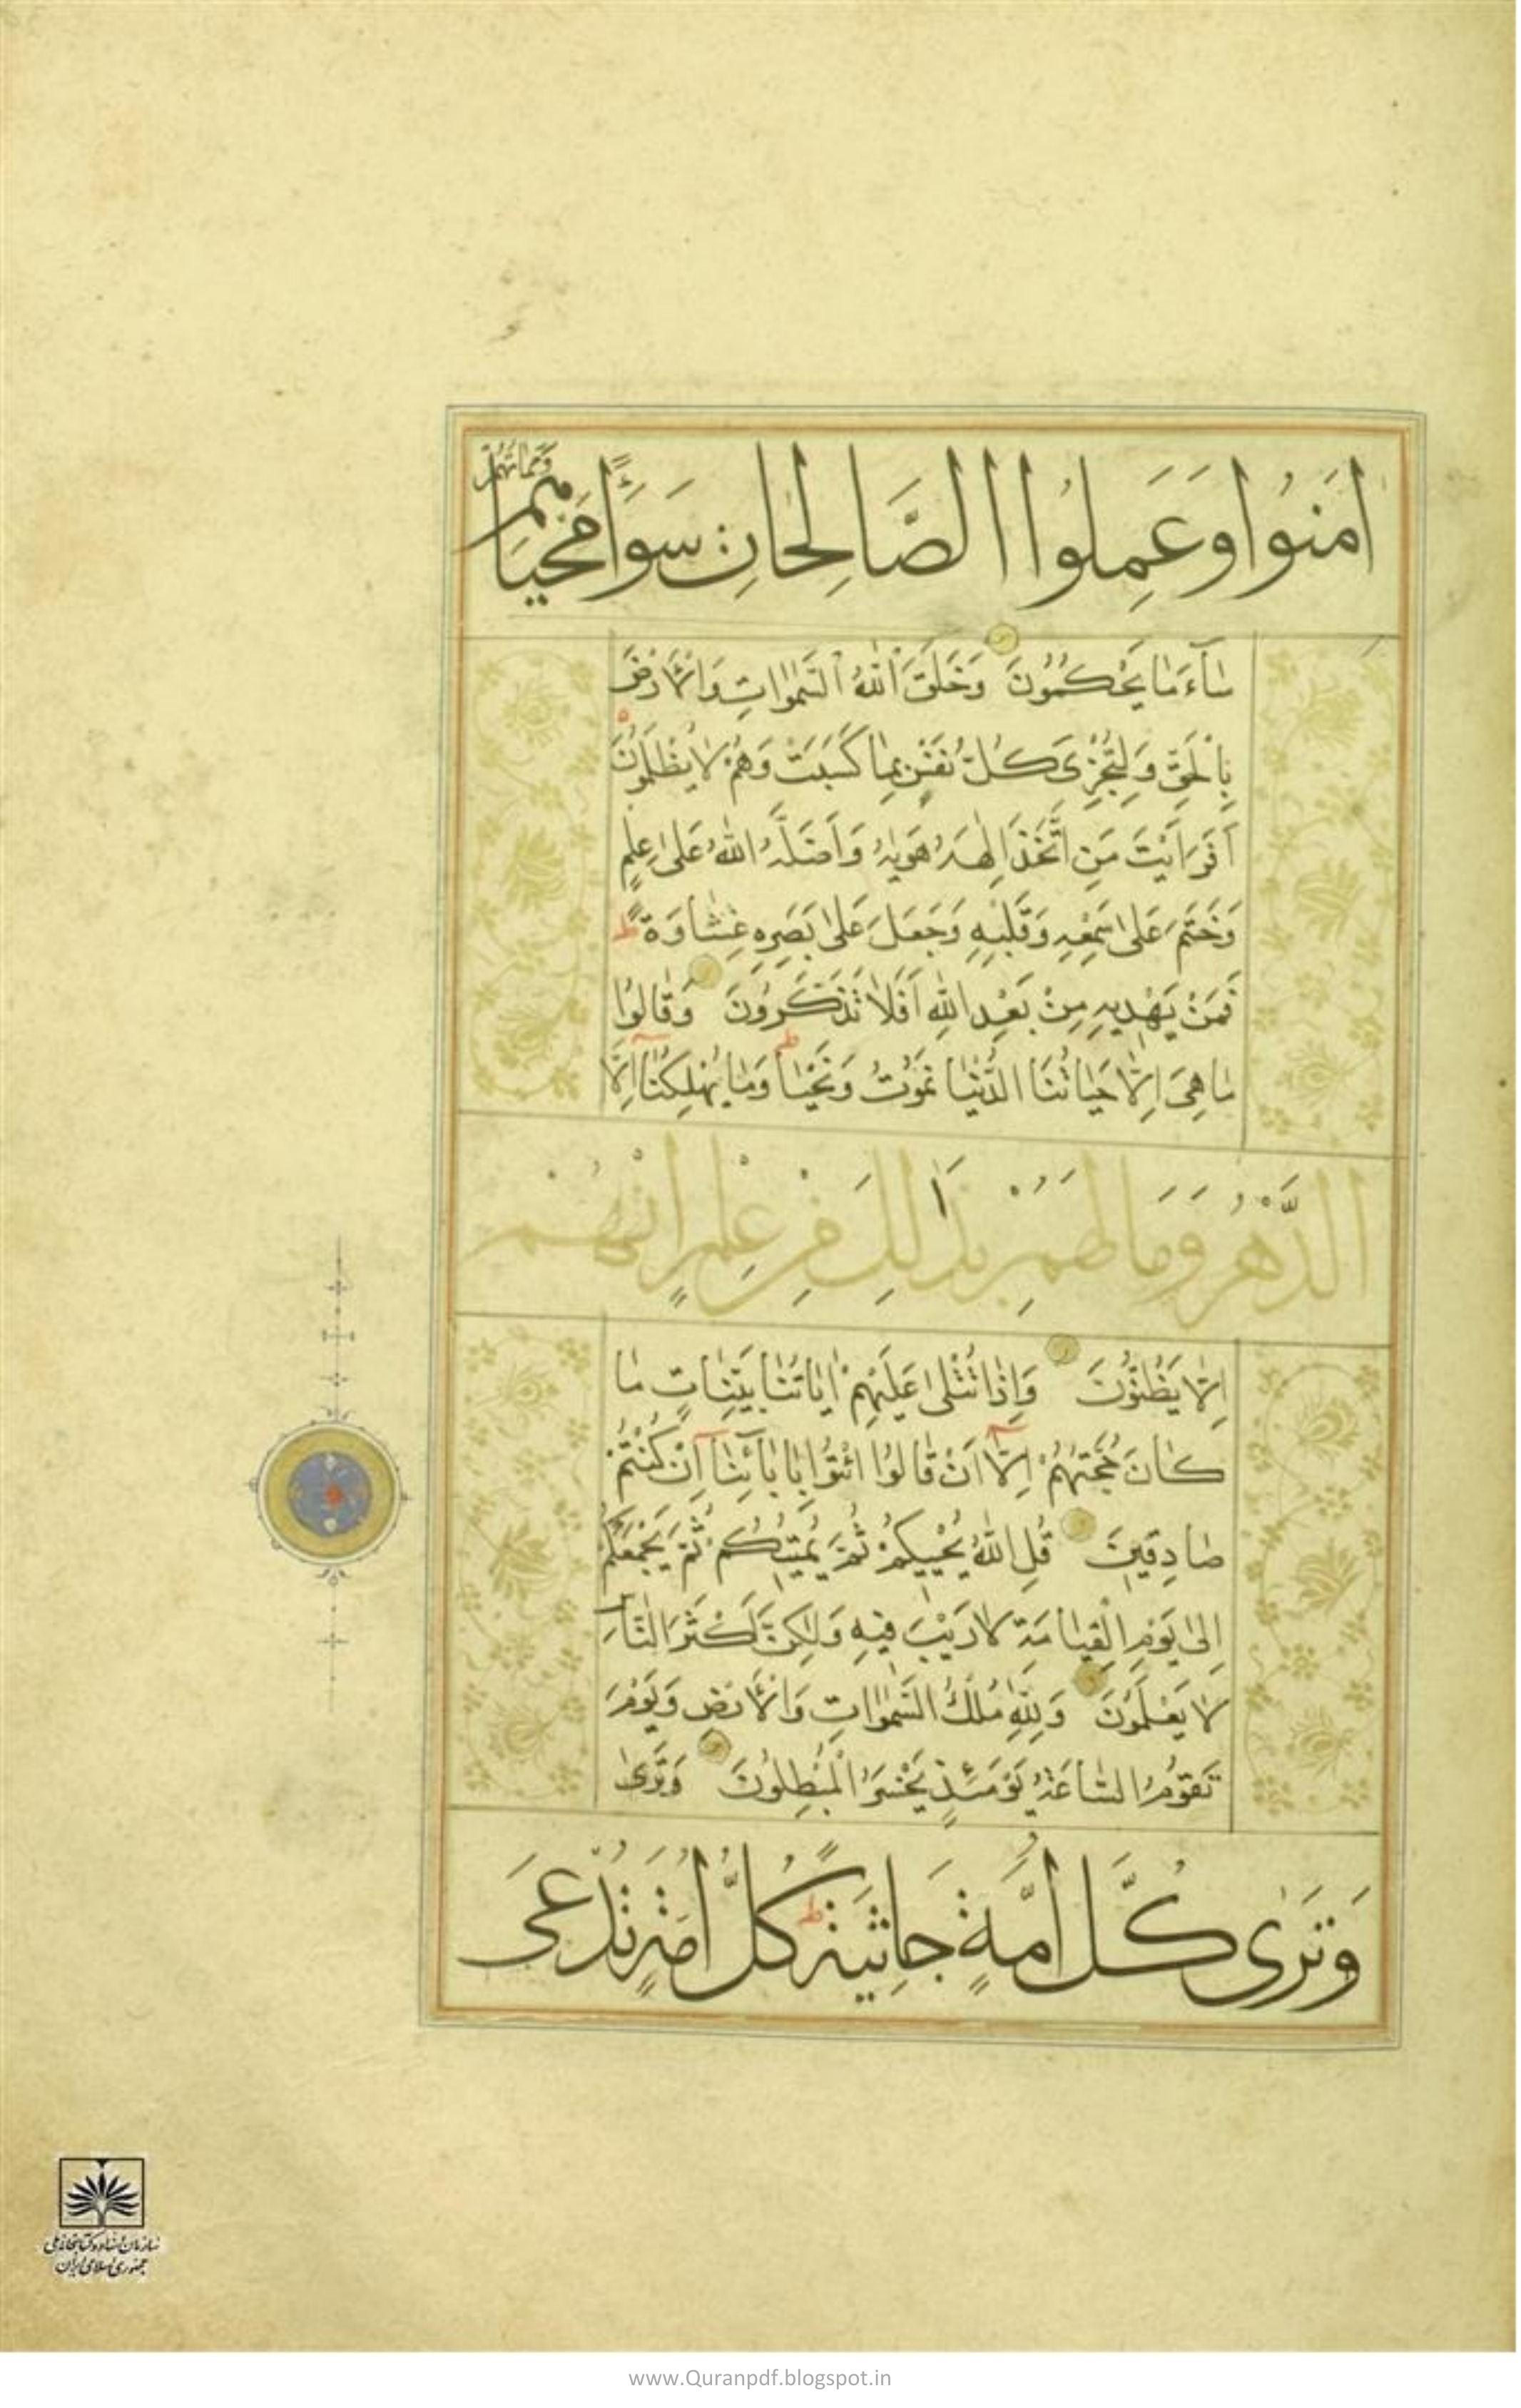 اٰمَنُوا وَعَمِلُوا الصَّالِحَاتِ سَوَاءً مَحْيَاهُمْ
وَمَمَاتُهُمْ
سَاءَ مَا يَحْكُمُونَ وَخَلَقَ اللّٰهُ السَّمٰوَاتِ وَالْاَرْضَ
بِالْحَقِّ وَلِتُجْزٰى كُلُّ نَفْسٍ بِمَا كَسَبَتْ وَهُمْ لَا يُظْلَمُونَ
اَفَرَاَيْتَ مَنِ اتَّخَذَ اِلٰهَهُ هَوٰيهُ وَاَضَلَّهُ اللّٰهُ عَلٰى عِلْمٍ
وَخَتَمَ عَلٰى سَمْعِهِ وَقَلْبِهِ وَجَعَلَ عَلٰى بَصَرِهِ غِشَاوَةً ط
فَمَنْ يَهْدِيهِ مِنْ بَعْدِ اللّٰهِ اَفَلَا تَذَكَّرُونَ وَقَالُوا
مَا هِىَ اِلَّا حَيَاتُنَا الدُّنْيَا نَمُوتُ وَنَحْيَا وَمَا يُهْلِكُنَا اِلَّا
الدَّهْرُ وَمَا لَهُمْ بِذٰلِكَ مِنْ عِلْمٍ اِنْ هُمْ
اِلَّا يَظُنُّونَ وَاِذَا تُتْلٰى عَلَيْهِمْ اٰيَاتُنَا بَيِّنَاتٍ مَا
كَانَ حُجَّتَهُمْ اِلَّا اَنْ قَالُوا ائْتُوا بِاٰبَائِنَا اِنْ كُنْتُمْ
صَادِقِينَ قُلِ اللّٰهُ يُحْيِيكُمْ ثُمَّ يُمِيتُكُمْ ثُمَّ يَجْمَعُكُمْ
اِلٰى يَوْمِ الْقِيَامَةِ لَا رَيْبَ فِيهِ وَلٰكِنَّ اَكْثَرَ النَّاسِ
لَا يَعْلَمُونَ وَلِلّٰهِ مُلْكُ السَّمٰوَاتِ وَالْاَرْضِ وَيَوْمَ
تَقُومُ السَّاعَةُ يَوْمَئِذٍ يَخْسَرُ الْمُبْطِلُونَ وَتَرٰى
وَتَرٰى كُلَّ اُمَّةٍ جَاثِيَةً ط كُلُّ اُمَّةٍ تُدْعٰى
سازمان اسناد و کتابخانه ملی
جمهوری اسلامی ایران
www.Quranpdf.blogspot.in